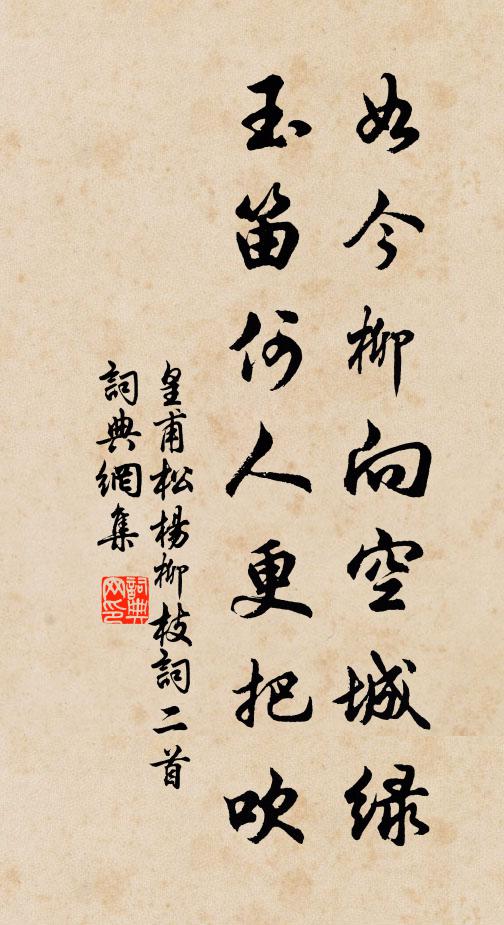 如今柳向空城绿
玉笛何人更把吹
皇甫松楊柳枝詞二首
詞典網集
詞典網印